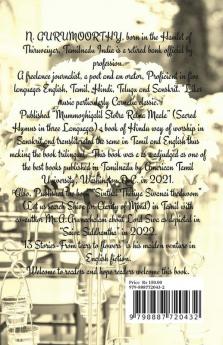 N. GURUMOORTHY, born in the Hamlet of
Thiruvaiyer, Tamilnadu India is a retired bank official by
profession.
A freelance journalist, a poet and an orator. Proficient in five
languages English, Tamil, Hindi, Telugu and Sanskrit. Likes
music particularly Carnatic classic.
Published "Mummozhigalil Stotra Retna Meda" (Sacred
Hymns in three Languages) a book of Hindu way of worship in
Sanskrit and transliterated the same in Tamil and English thus
making the book trilingual. This book was adjudged as one of
the best books published in Tamilnadu by American Tamil
University, Washington D.C, in 2021.
Also, Published the Sivanai
(Let us search Shiva for Clarity of Mind) in Tamil with
co-author Mr. A. Gunachalam about Lord Siva as depicted in
"Saiva Siddhantha" in 2022.
13 Stories-From tears to flowers is his maiden venture in
English fiction.
Welcome to readers and hope readers welcome this book.
Price: Rs 180.00
9798887720432
9 798887 720432